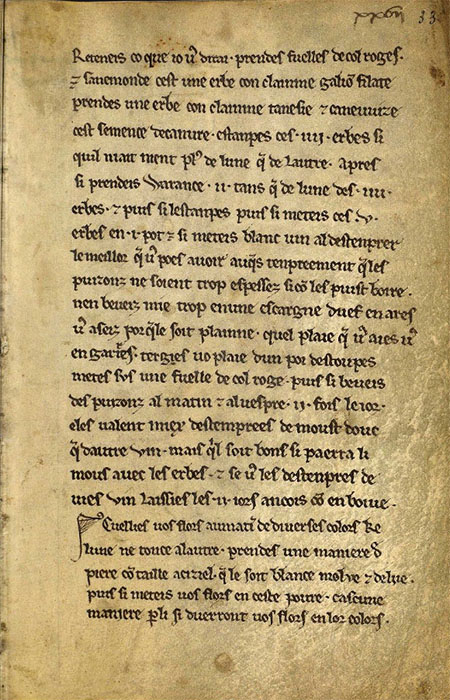 Reteneis co que io ũ dirai · prendes fuelles de col roges ·
⁊ sanemonde cest une erbe con clainme galiõ filate
prendes une erbe con clainme tanesie ⁊ caneuuize
cest semence decanure · estanpes ces · iiii · erbes si
quil niait nient plꝰ de lune q̃ de lautre · Apres
si prenderis Warance · ii · tans q̃ de lune des · iiii ·
erbes · ⁊ puis si lestanpes puis si meteris ces · v ·
erbes en · i · pot ⁊ si meteris blanc uin al destenprer
le meillor q̃ ũ poes auoir auq̃s tenpreement q̃ les
puizonz ne soient trop espessez si cõ les puist boire ·
nen beuez mie trop enune escargne duef en ares
ũ asez porq̃le soit plainne · quel plaie q̃ ũ aies ũ
en gareis · tergies uo plaie dun poi destoupes
metes sꝰs une fuelle de col roge · puis si beueis
des puizonz al matin ⁊ aluespre · ii · fois le ior ·
eles ualent miex destemprees de moust douc
q̃ dautre uin · mais q̃l soit bons si paerra li
mous auec les erbes · ⁊ se ũ les destenpres de
uies uin laissies les · ii · iors ancois cõ en boiue ·
Cuellies uos flors aumati̾ dediuerses colors ke
lune ne touce alautre · prendes une maniere d̾
piere cõ taille aciziel · q̃ le soit blance molue ⁊ delie ·
puis si meteis uos flors en ceste poure · cascune
maniere p̱ li si duerront uos flors en lor colors ·